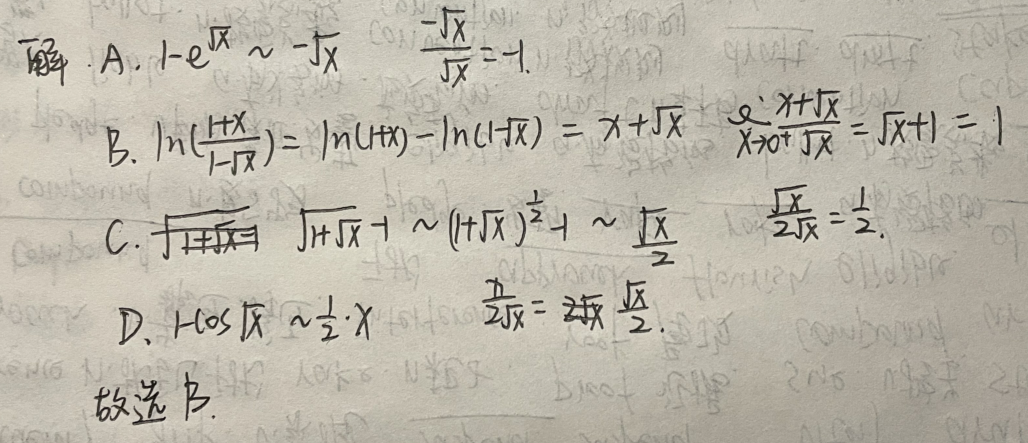 解. A. 1-e^{√x} ~ -√x    \frac{-√x}{√x} = -1.
B. ln(\frac{1+x}{1-√x}) = ln(1+x) - ln(1-√x) = x+√x    \lim_{x→0⁺} \frac{x+√x}{√x} = √x+1 = 1
C. √(1+√x) -1 ~ (1+√x)^{\frac{1}{2}} -1 ~ \frac{√x}{2}    \frac{√x}{2√x} = \frac{1}{2}.
D. 1-cos√x ~ \frac{1}{2}·x    \frac{x}{2√x} = \frac{√x}{2}.
故选 B.